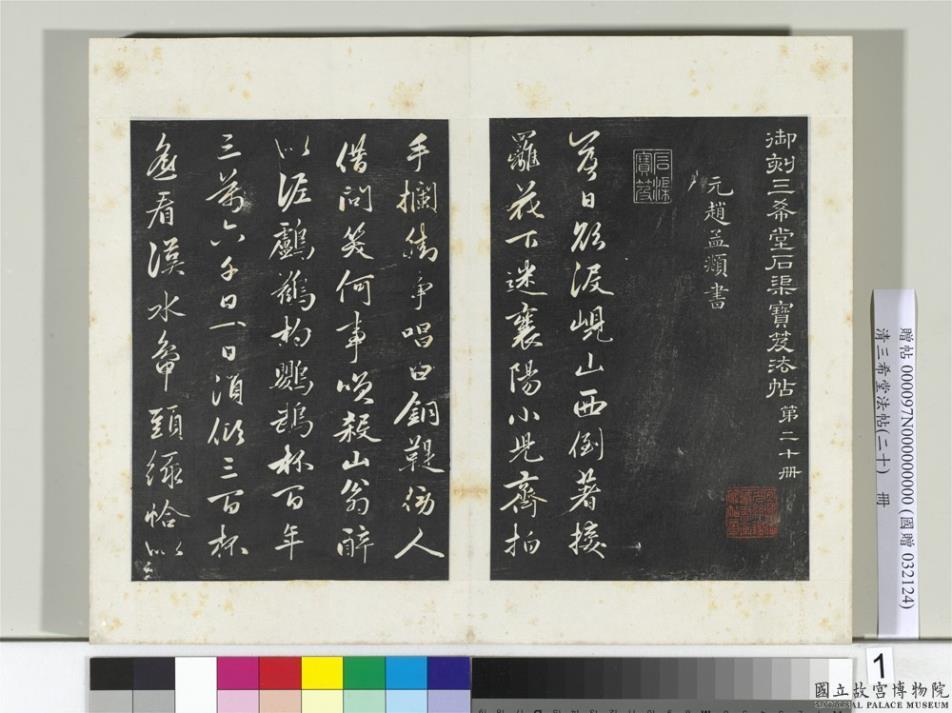 御刻三希堂石渠寶笈法帖 第二十冊
元趙孟頫書
石渠寶笈
落日欲沒峴山西倒著接
䍦花下迷襄陽小兒齊拍
手攔街爭唱白銅鞮傍人
借問笑何事笑殺山翁醉
似泥鸕鶿杓鸚鵡杯百年
三萬六千日一日須傾三百杯
遙看漢水鴨頭綠恰似
贈帖 000097N000000000 (國贈 032124)
清三希堂法帖(二十) 冊
1
國立故宮博物院
NATIONAL PALACE MUSEUM